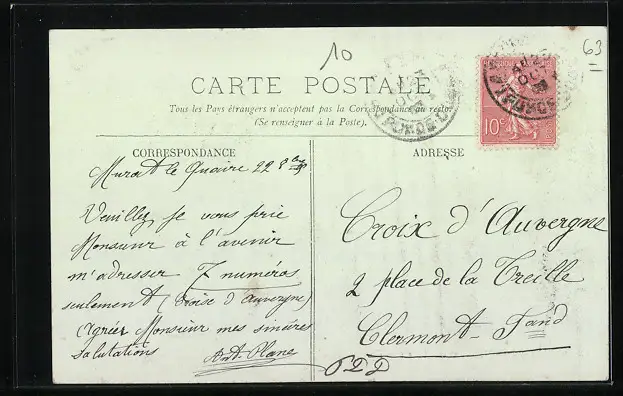 10
63
CARTE POSTALE
Tous les Pays étrangers n'acceptent pas la Correspondance au recto.
(Se renseigner à la Poste).
CORRESPONDANCE
Murat le Quaire 22 8bre
Veuillez, je vous prie
Monsieur à l'avenir
m'adresser 7 numéros
seulement (Croise d'Auvergne)
Agréez Monsieur mes sincères
salutations
Ant. Plane
ADRESSE
10c
Croix d'Auvergne
2 place de la Treille
Clermont-Fand